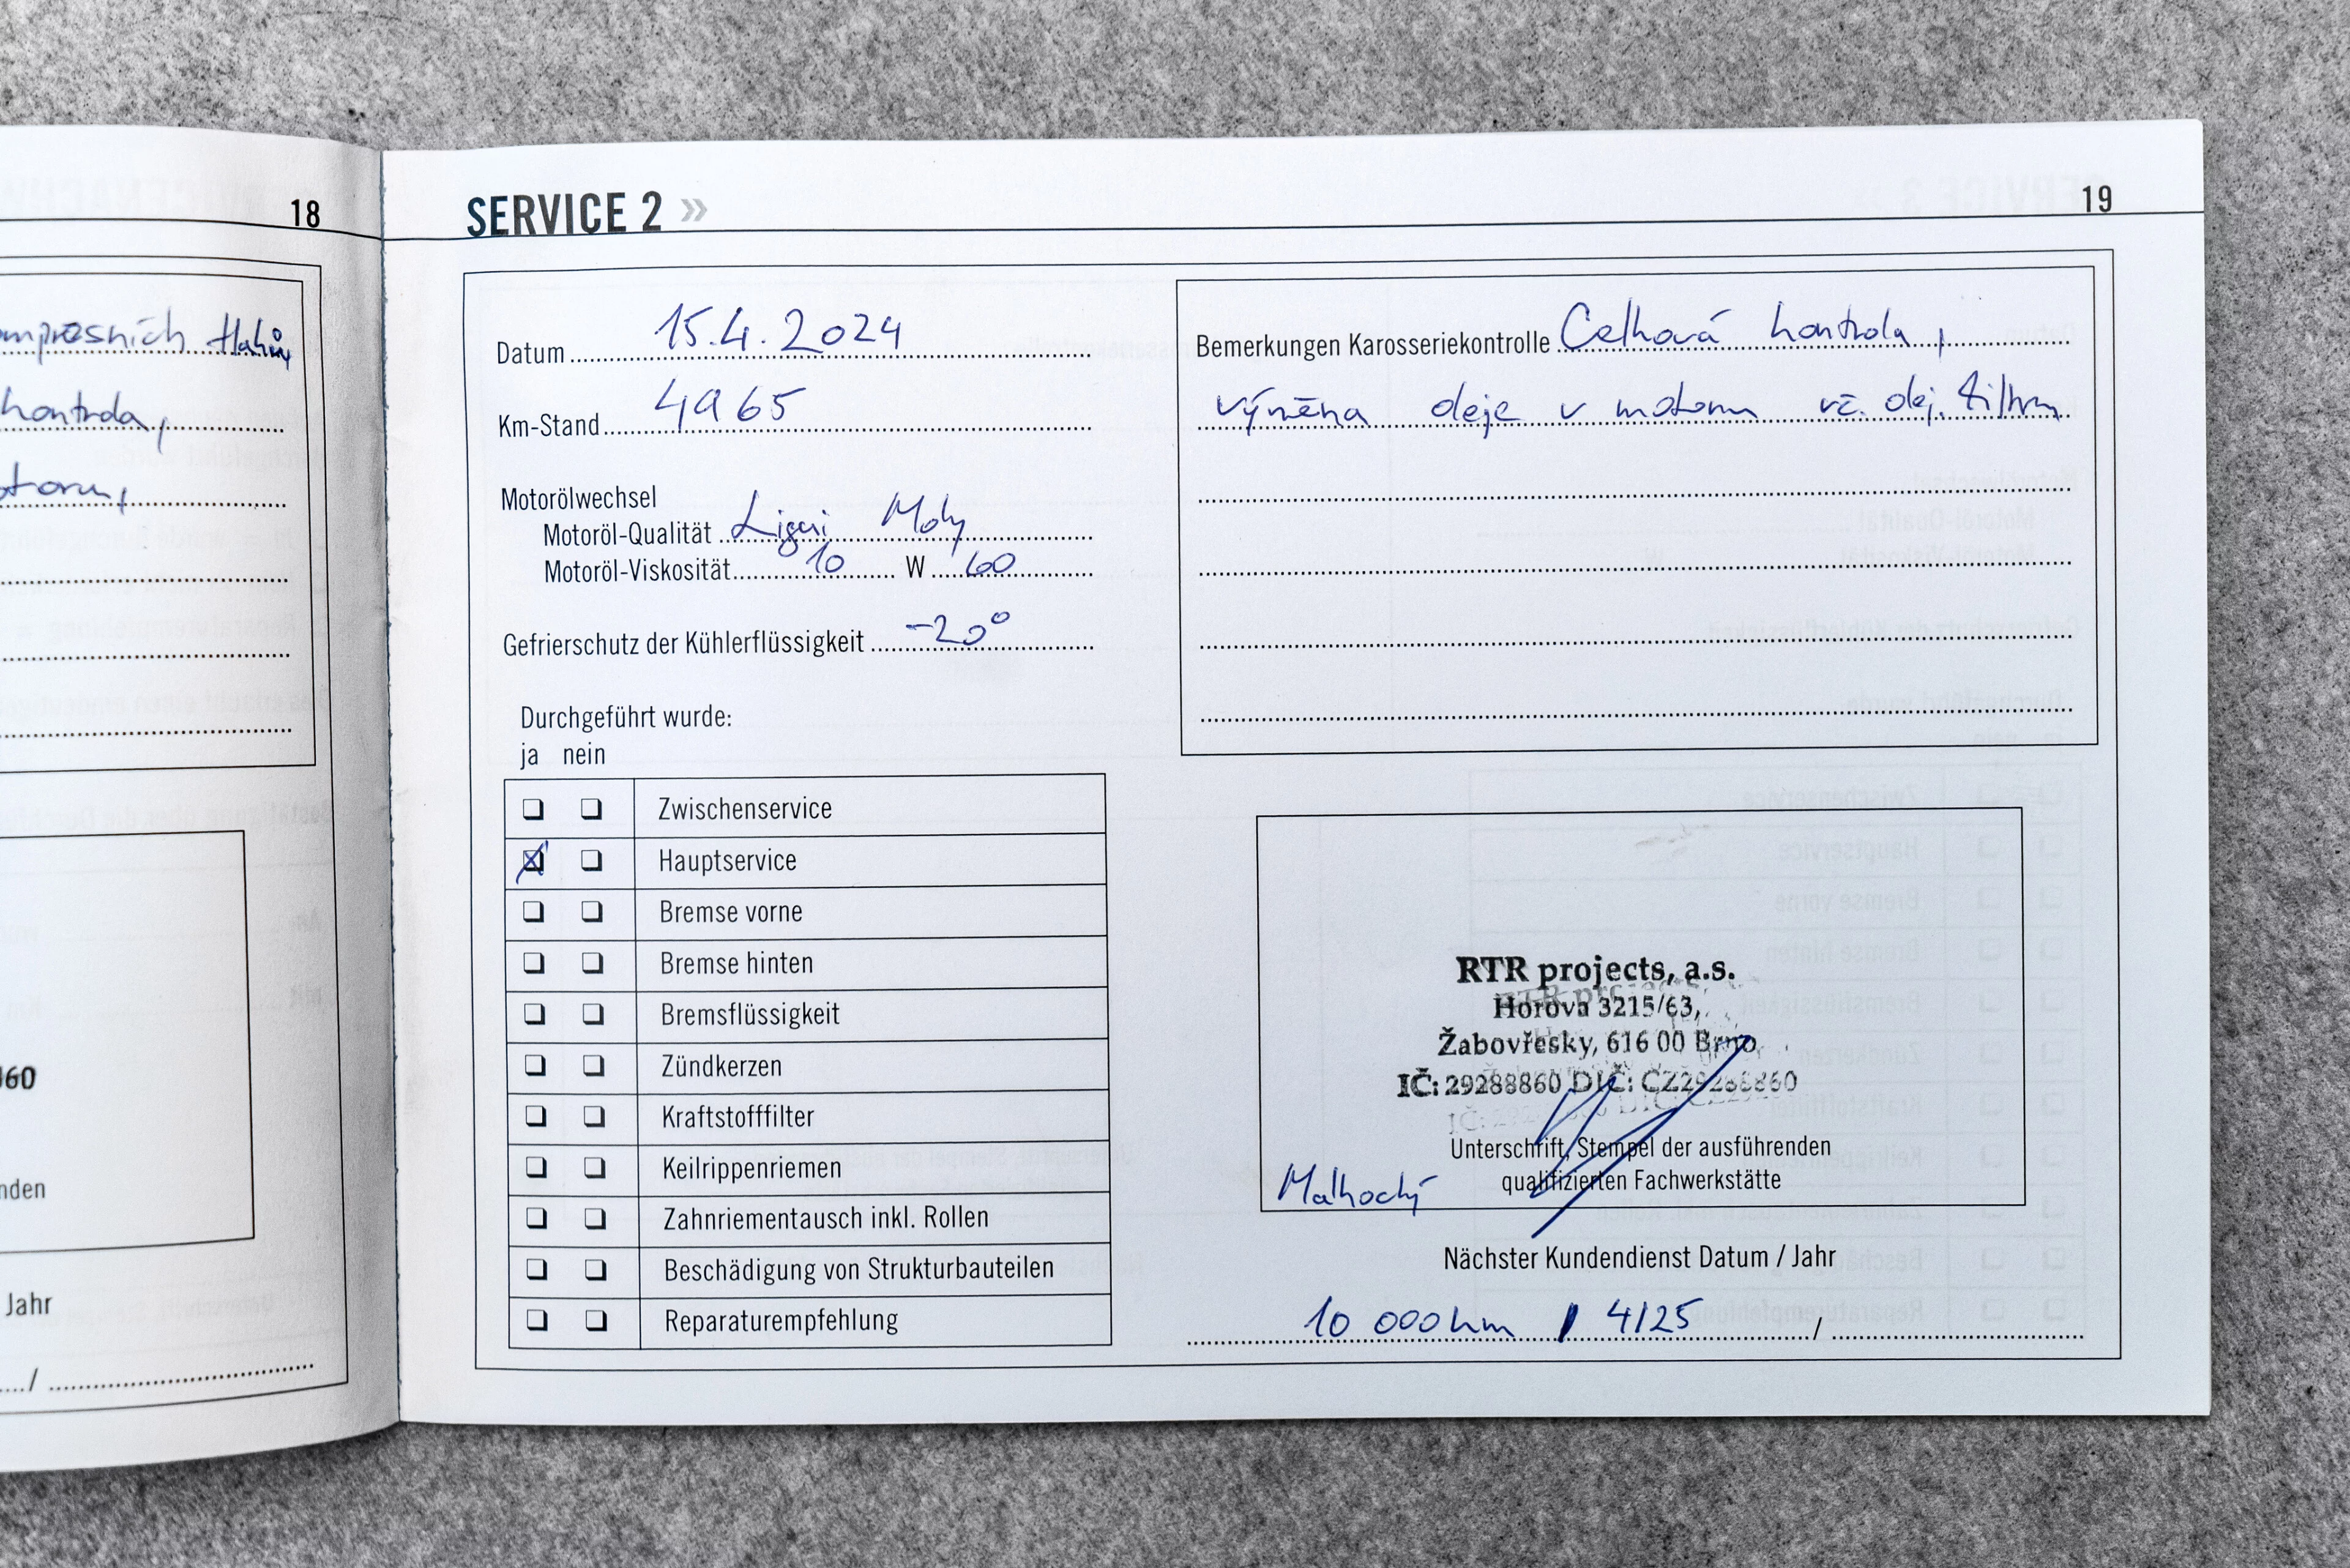 18
ompresních tlaků,
kontrola,
otoru,
060
nden
Jahr
..../
SERVICE 2 »
19
Datum 15.4.2024
Km-Stand 4965
Motorölwechsel
Motoröl-Qualität Liqui Moly
Motoröl-Viskosität 10 W 60
Gefrierschutz der Kühlerflüssigkeit -20°
Durchgeführt wurde:
ja nein
Zwischenservice
Hauptservice
Bremse vorne
Bremse hinten
Bremsflüssigkeit
Zündkerzen
Kraftstofffilter
Keilrippenriemen
Zahnriementausch inkl. Rollen
Beschädigung von Strukturbauteilen
Reparaturempfehlung
Bemerkungen Karosseriekontrolle Celková kontrola,
výměna oleje v motoru vč. olej. filtru
RTR projects, a.s.
Horova 3215/63,
Žabovřesky, 616 00 Brno
IČ: 29288860 DIČ: CZ29288860
Unterschrift, Stempel der ausführenden
qualifizierten Fachwerkstätte
Malhocký
Nächster Kundendienst Datum / Jahr
10 000 km / 4/25 /